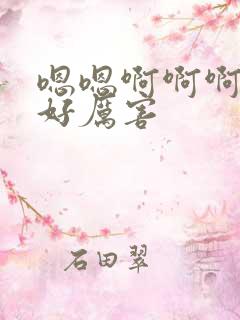 嗯嗯啊啊啊
好厉害
石田翠